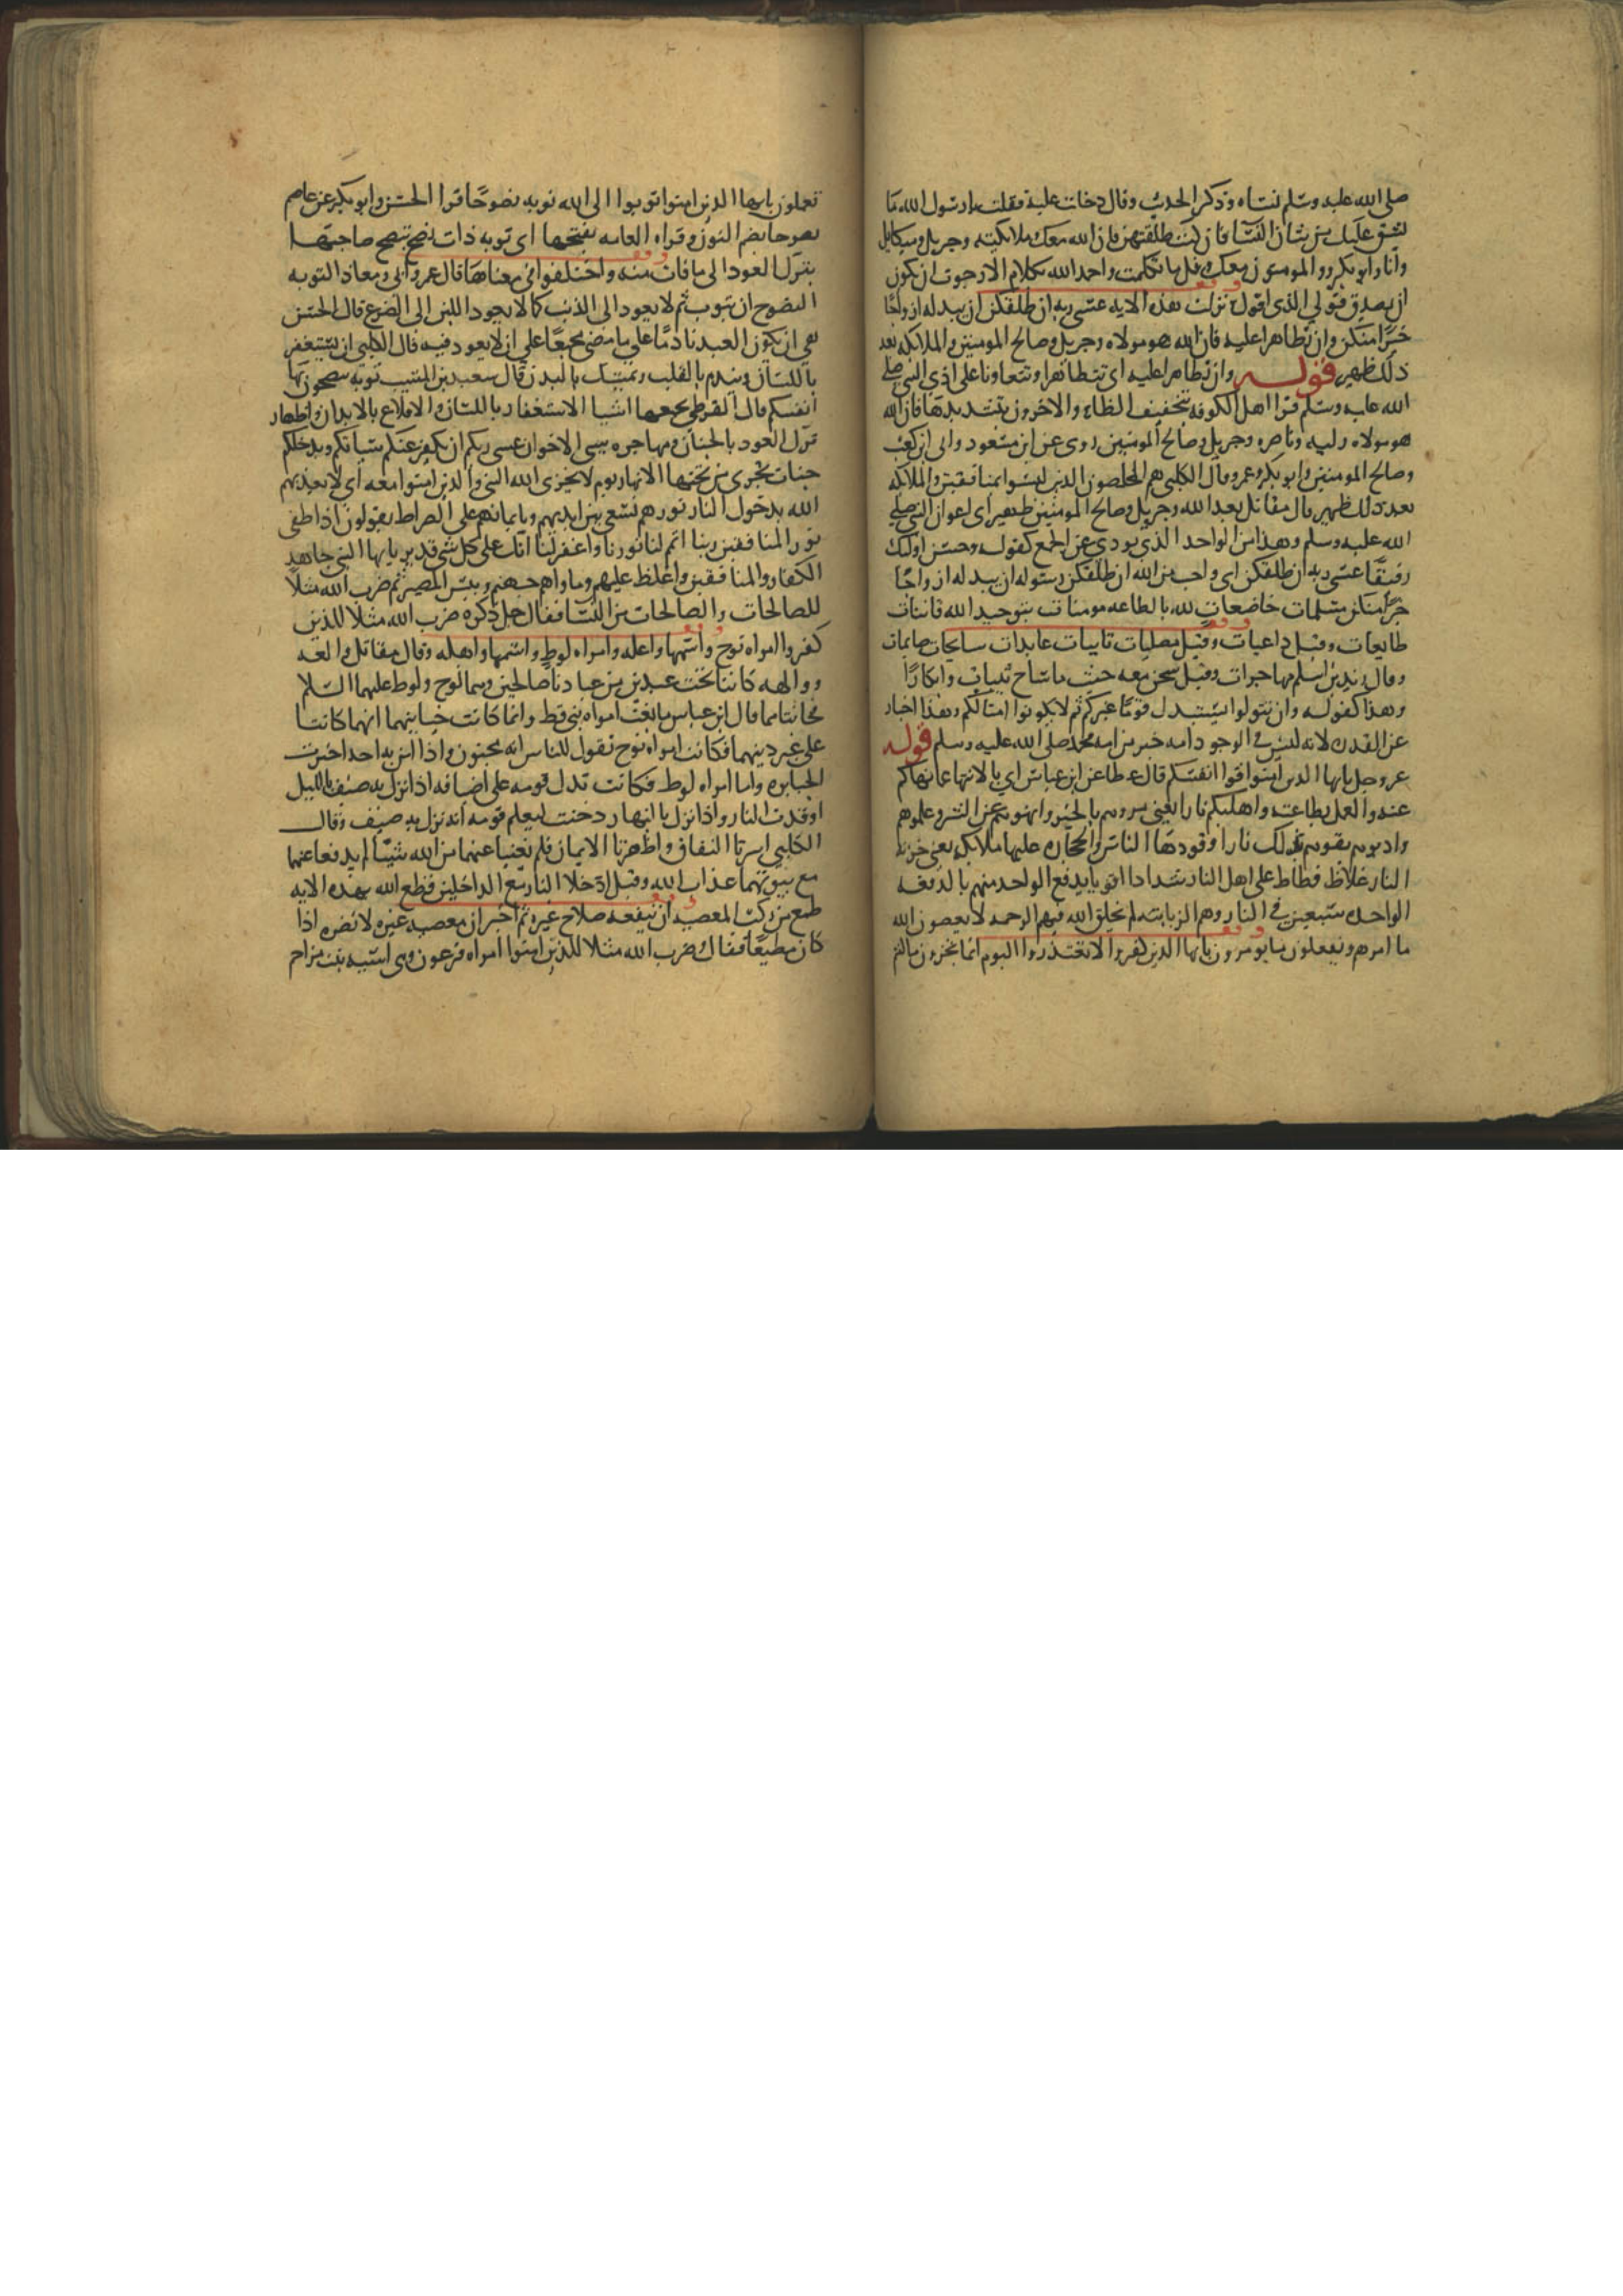 صلى الله عليه وسلم نساه وذكر الحديث وقال دخلت عليه فقلت يا رسول الله ما
يشق عليك من شان النسا فان كنت طلقتهن فان الله معك وملايكته وجبريل وميكايل
وانا وابو بكر والمومنون معك وقل ما تكلمت واحمد الله بكلام الا رجوت ان يكون
الله يصدق قولي الذي اقول ونزلت هذه الايه عسى ربه ان طلقكن ان يبدله ازواجا
خيرا منكن وان تظاهرا عليه فان الله هو مولاه وجبريل وصالح المومنين والملايكه بعد
ذلك ظهير قوله وان تظاهرا عليه اي تتظاهرا وتتعاونا على اذي النبي صلى
الله عليه وسلم قرا اهل الكوفه بتخفيف الظاء والاخرون بتشديدها فان الله
هو مولاه وليه وناصره وجبريل وصالح المومنين روى عن ابن مسعود وابي ابن كعب
وصالح المومنين ابو بكر وعمر وقال الكلبي هم المخلصون الذين ليسوا بمنافقين والملايكه
بعد ذلك ظهير قال مقاتل بعد الله وجبريل وصالح المومنين ظهير اي اعوان النبي صلى
الله عليه وسلم وهذا من الواحد الذي يودي عن الجمع كقوله وحسن اوليك
رفيقا عسى ربه ان طلقكن اي واجب من الله ان طلقكن رسوله ان يبدله ازواجا
خيرا منكن مسلمات خاضعات لله بالطاعه مومنات بتوحيد الله قانتات
طايعات وقيل داعيات وقيل مصليات تايبات عابدات سايحات صايمات
وقال زيد بن اسلم مهاجرات وقيل يسحن معه حيث ما ساح ثيبات وابكارا
وهذا كقوله وان تتولوا يستبدل قوما غيركم ثم لا يكونوا امثالكم وهذا اخبار
عن القدره لانه ليس في الوجود امه خير من امه محمد صلى الله عليه وسلم قوله
عز وجل يايها الذين امنوا قوا انفسكم قال عطا عن ابن عباس اي بالانتها عما نهاكم
عنه والعمل بطاعته واهليكم نارا يعني مروهم بالخير وانهوهم عن الشر وعلموهم
وادبوهم تقوهم بذلك نارا وقودها الناس والحجاره عليها ملايكه يعني خزنه
النار غلاظ فظاظ على اهل النار شداد اقويا يدفع الواحد منهم بالدفعه
الواحده سبعين في النار وهم الزبانيه لم يخلق الله فيهم الرحمه لا يعصون الله
ما امرهم ويفعلون ما يومرون يايها الذين كفروا لا تعتذروا اليوم انما تجزون ما كنتم
تعملون يايها الذين امنوا توبوا الى الله توبه نصوحا قرا الحسن وابو بكر عن عاصم
نصوحا بضم النون وقراه العامه بفتحها اي توبه ذات نصح تنصح صاحبها
بترك العود الى ما فات منه واختلفوا في معناها قال عمر وابي ومعاذ التوبه
النصوح ان يتوب ثم لا يعود الى الذنب كما لا يعود اللبن الى الضرع قال الحسن
هي ان يكون العبد نادما على ما مضى مجمعا على ان لا يعود فيه قال الكلبي ان يستغفر
باللسان ويندم بالقلب ويمسك بالبدن قال سعيد بن المسيب توبه تنصحون بها
انفسكم قال القرظي يجمعها اشيا الاستغفار باللسان والاقلاع بالابدان واظهار
ترك العود بالجنان ومهاجره سيي الاخوان عسى ربكم ان يكفر عنكم سياتكم ويدخلكم
جنات تجري من تحتها الانهار يوم لا يخزي الله النبي والذين امنوا معه اي لا يعذبهم
الله بدخول النار نورهم يسعى بين ايديهم وبايمانهم على الصراط يقولون اذا طفى
نور المنافقين ربنا اتمم لنا نورنا واغفر لنا انك على كل شي قدير يايها النبي جاهد
الكفار والمنافقين واغلظ عليهم وماواهم جهنم وبيس المصير ثم ضرب الله مثلا
للصالحات والصالحات من النسا فقال جل ذكره ضرب الله مثلا للذين
كفروا امراه نوح واسمها واعله وامراه لوط واسمها واهله وقال مقاتل والعه
ووالهه كانتا تحت عبدين من عبادنا صالحين وهما نوح ولوط عليهما السلام
فخانتاهما قال ابن عباس ما بغت امراه نبي قط وانما كانت خيانتهما انهما كانتا
على غير دينهما فكانت امراه نوح تقول للناس انه مجنون واذا امن به احد اخبرت
الجبابره واما امراه لوط فكانت تدل قومه على اضيافه اذا نزل به ضيف بالليل
اوقدت النار واذا نزل بالنهار دخنت ليعلم قومه انه نزل به ضيف وقال
الكلبي اسرتا النفاق واظهرتا الايمان فلم يغنيا عنهما من الله شيا لم يدفعا عنهما
مع نبوتهما عذاب الله وقيل ادخلا النار مع الداخلين قطع الله بهذه الايه
طمع من ركب المعصيه ان ينفعه صلاح غيره ثم اخبر ان معصيه غيره لا تضره اذا
كان مطيعا فقال وضرب الله مثلا للذين امنوا امراه فرعون وهي اسيه بنت مزاحم